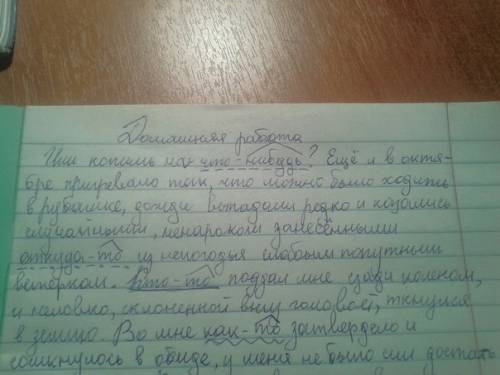 Домашняя работа
Или копишь на что-нибудь? Ещё и в октя-
бре пригревало так, что можно было ходить
в рубашке, дожди выпадали редко и казались
случайными, ненароком занесёнными
откуда-то из непогодья слабым попутным
ветерком. Кто-то поддал мне сзади коленом,
и неловко, склонённой вниз головой, ткнулся
в землю. Во мне как-то затвердело и
сомкнулось в обиде, у меня не было сил достать